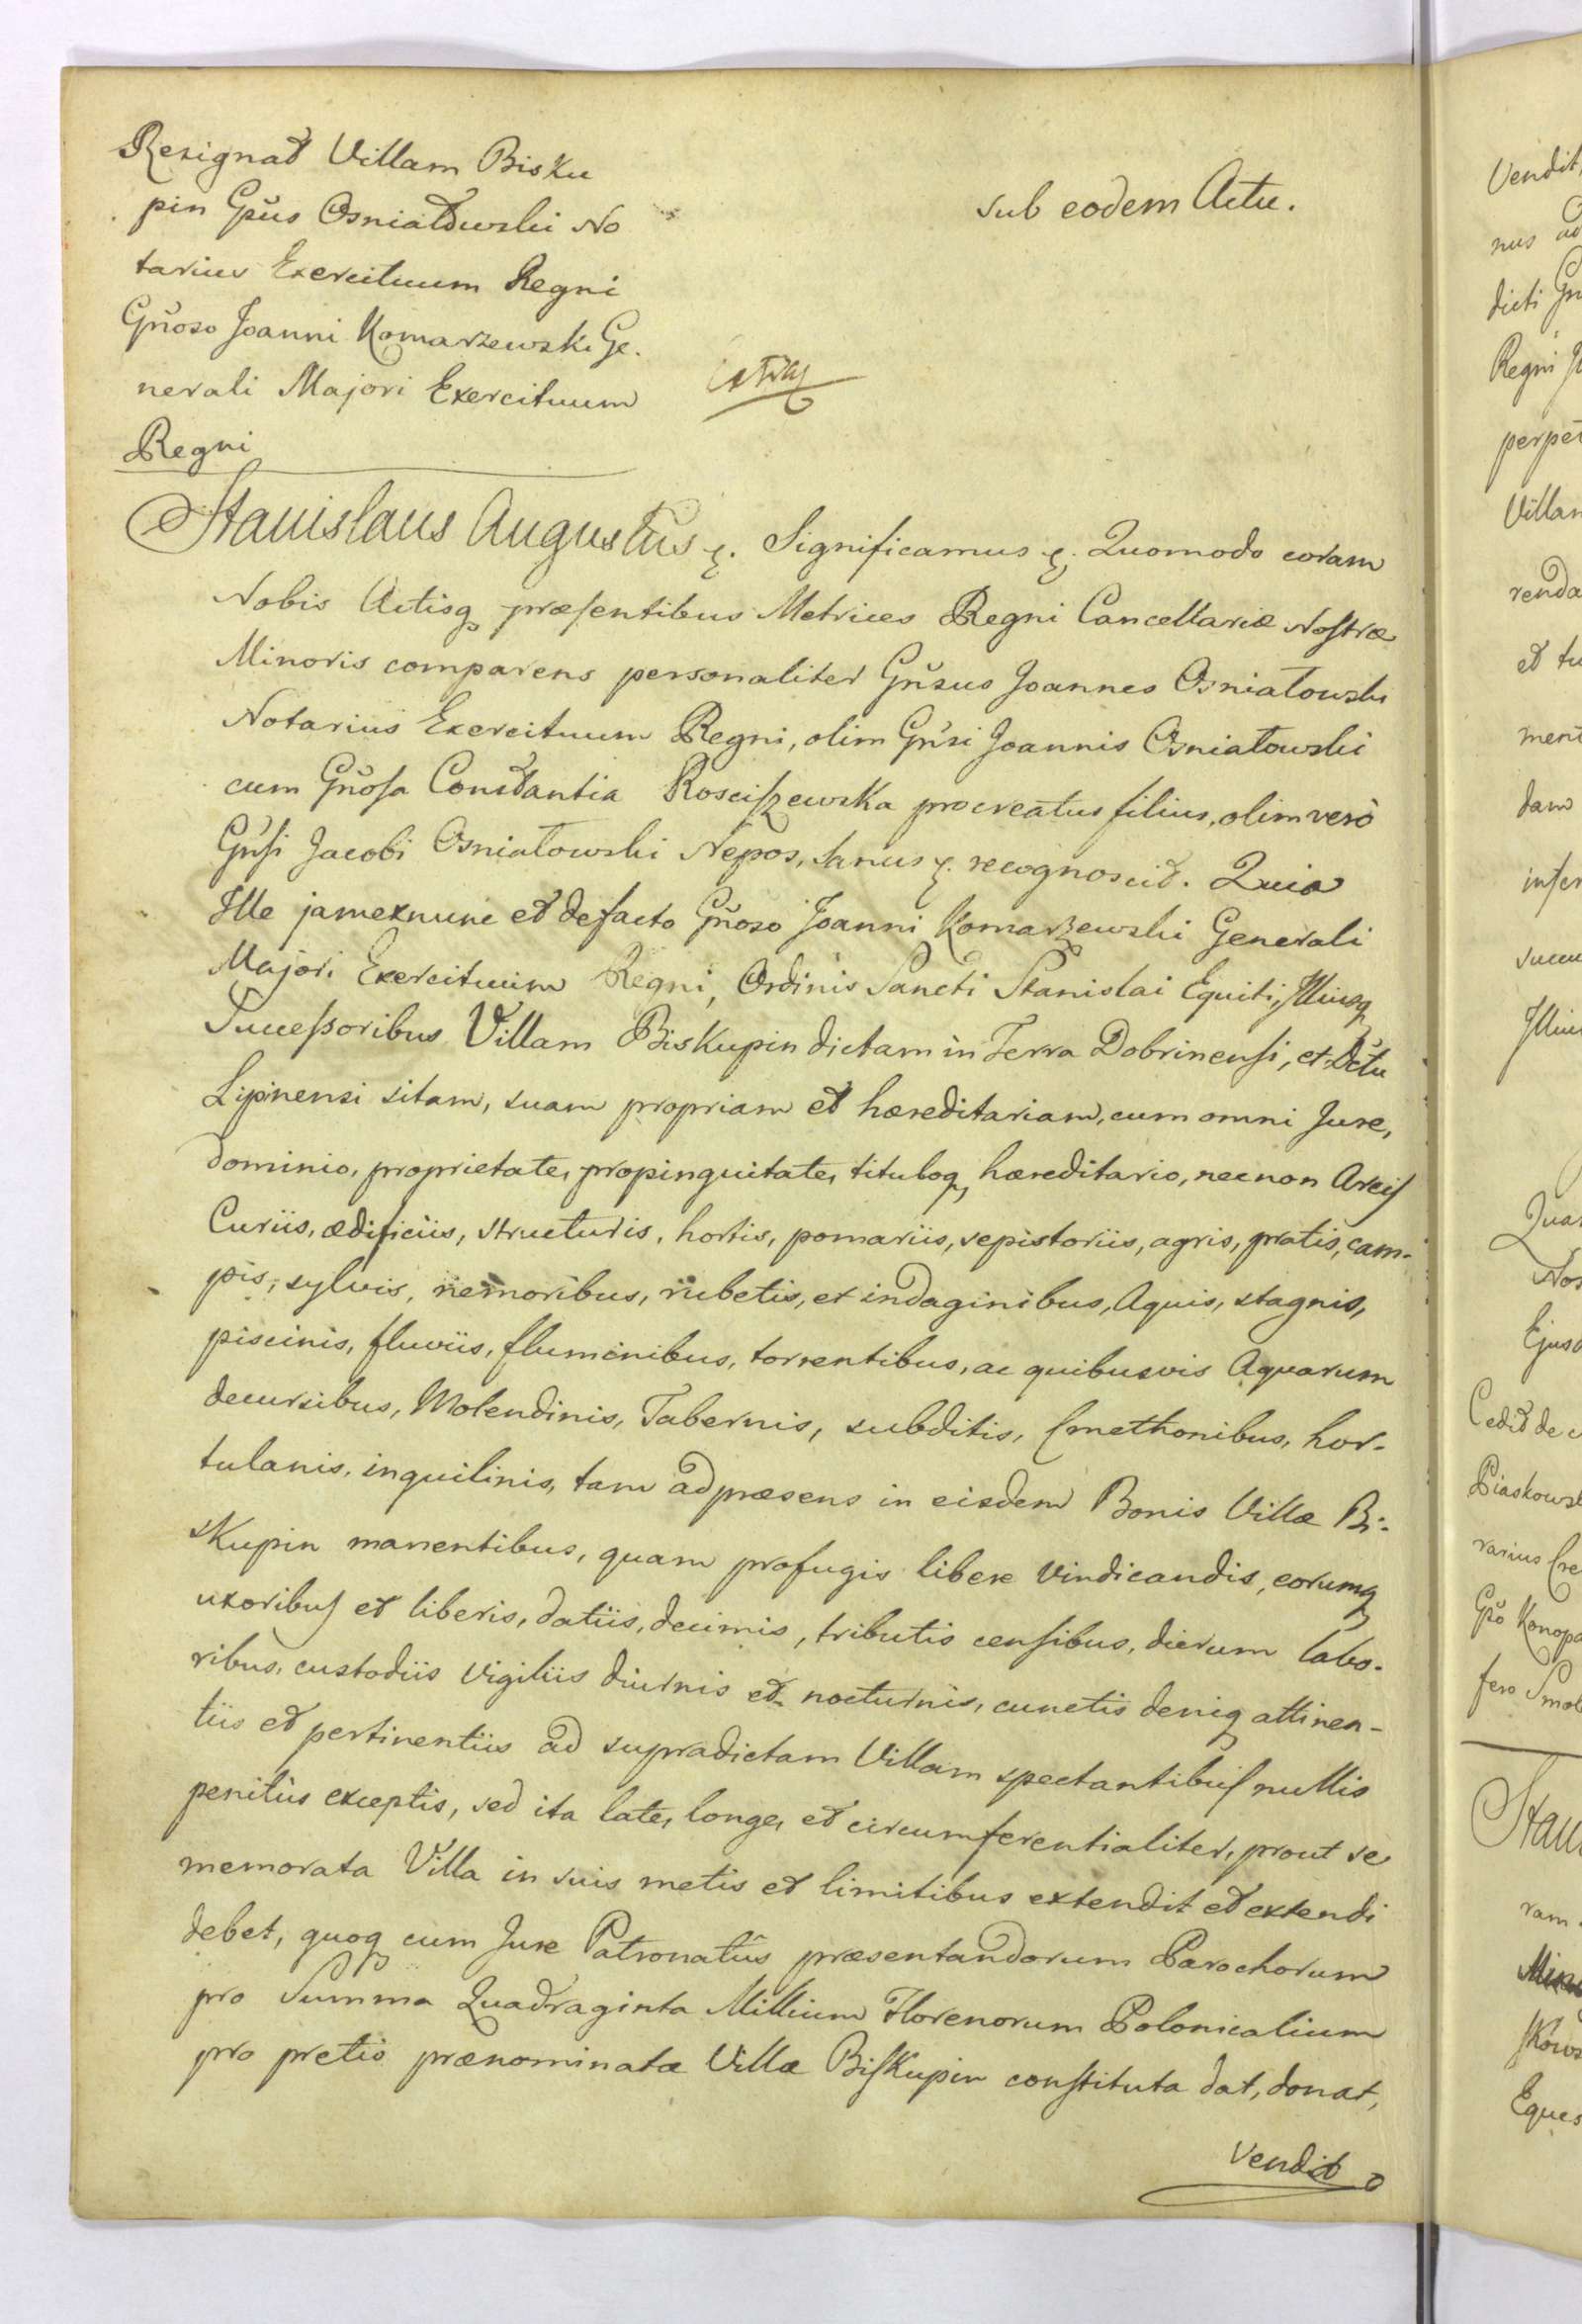 Resignat Villam Bisku
pin Gñus Osniałowski No
tarius Exercituum Regni
Gñoso Joanni Komarzewski Ge.
nerali Majori Exercituum
Regni
sub eodem Actu.
Stanislaus Augustus &. Significamus &. Quomodo coram
Nobis Actisq præsentibus Metrices Regni Cancellariæ Nostræ
Minoris comparens personaliter Gñsus Joannes Osniałowski
Notarius Exercituum Regni, olim Gñsi Joannis Osniałowski
cum Gñosa Constantia Rosciszewska procreatus filius, olim verò
Gñsi Jacobi Osniałowski Nepos, sanus &. recognoscit. Quia
Ille jamexnunc et defacto Gñoso Joanni Komarzewski Generali
Majori Exercituum Regni, Ordinis Sancti Stanislai Equiti, Illiusq
Successoribus Villam Biskupin dictam in Terra Dobrinensi, et Dctu
Lipnensi sitam, suam propriam et hæreditariam, cum omni Jure,
dominio, proprietate, propinquitate, tituloq, hæreditario, necnon Areis
Curiis, ædificiis, structuris, hortis, pomariis, sepistoriis, agris, pratis, cam-
pis, sylvis, nemoribus, rubetis, et indaginibus, Aquis, stagnis,
piscinis, fluviis, fluminibus, torrentibus, ac quibusvis Aquarum
decursibus, Molendinis, Tabernis, subditis, Cmethonibus, hor-
tulanis, inquilinis, tam ad præsens in eisdem Bonis Villæ Bi-
skupin manentibus, quam profugis libere vindicandis, eorumq
uxoribus et liberis, datiis, decimis, tributis censibus, dierum labo-
ribus, custodiis vigiliis diurnis et nocturnis, cunctis deniq attinen-
tiis et pertinentiis ad supradictam Villam spectantibus nullis
penitùs exceptis, sed ita late, longe, et circumferentialiter, prout se
memorata Villa in suis metis et limitibus extendit et extendi
debet, quoq cum Jure Patronatûs præsentandorum Parochorum
pro Summa Quadraginta Millium Florenorum Polonicalium
pro pretio prænominatæ Villæ Biskupin constituta dat, donat,
Vendit
Vendit,
nus
dicti
Regni
Villam
renda
et tu
dam
Quar
Nos
Ejusd
Cedit de
Piaskowsk
Konopa
Stani
ram
Eques